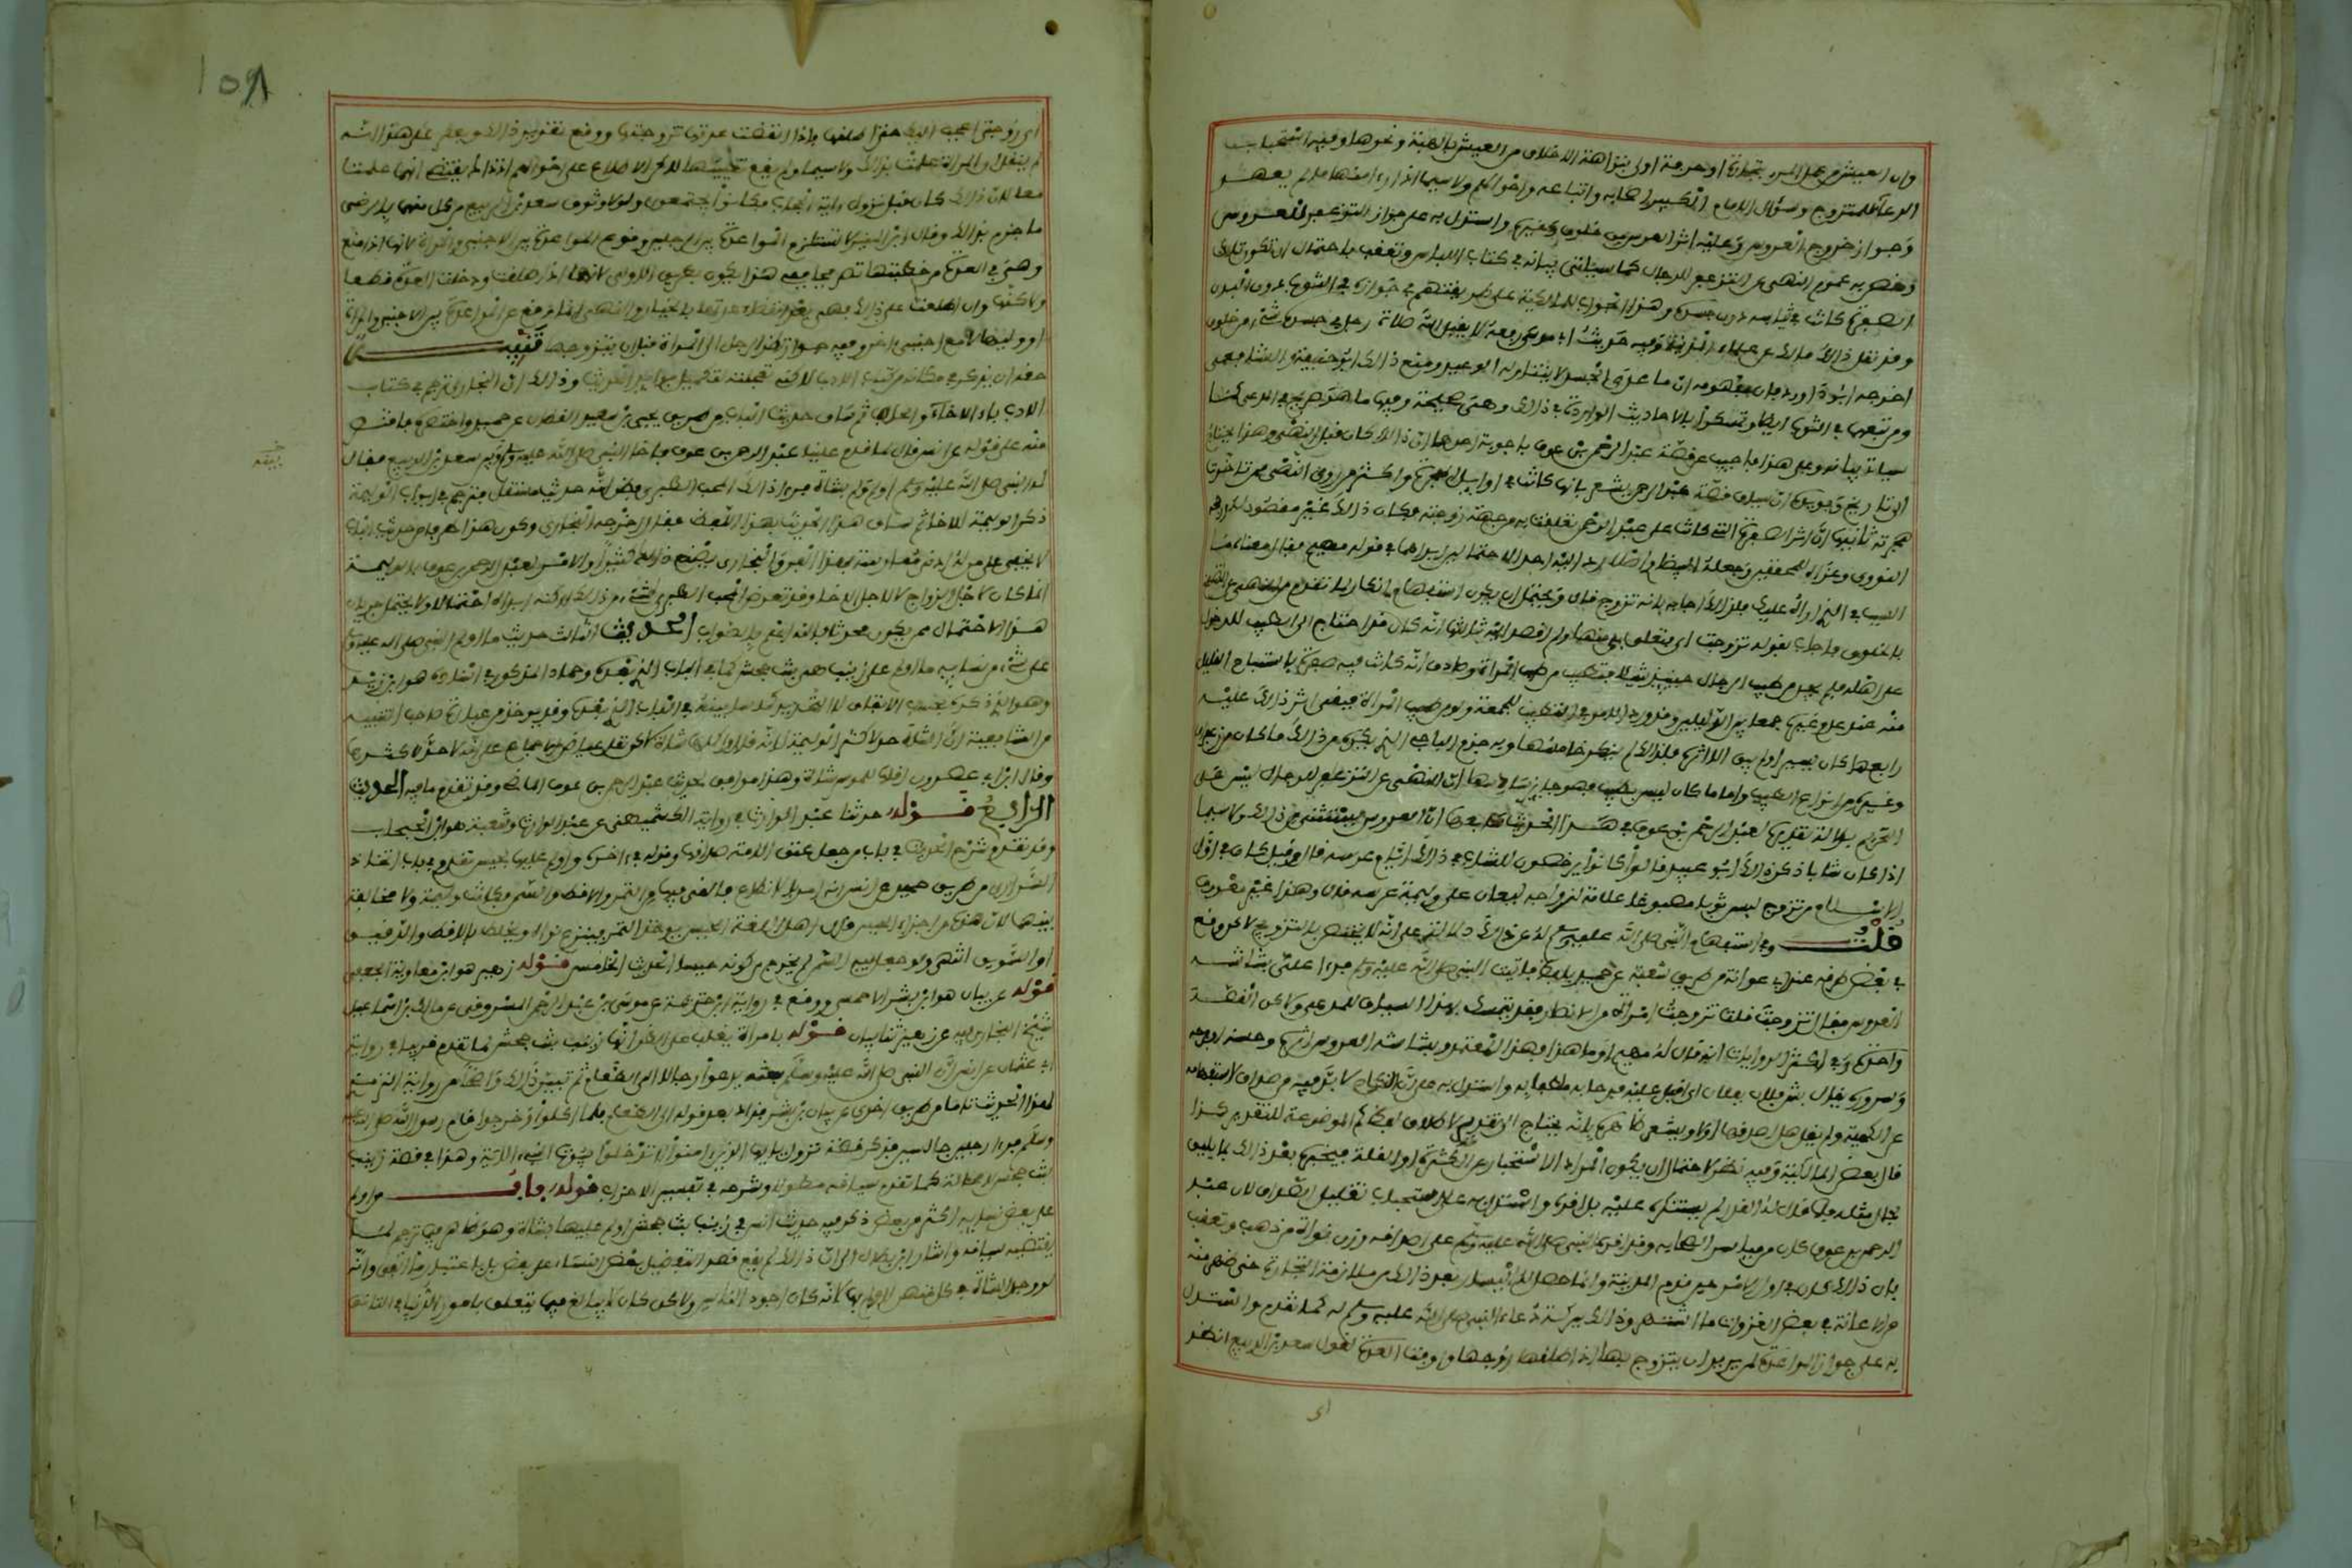 وان العيش من عمل المرء بتجارة او حرفة اولى بنزاهة الاخلاق من العيش بالهبة ونحوها وفيه استحباب
الدعاء للمتزوج وسؤال الامام والكبير اصحابه واتباعه واحوالهم ولاسيما اذا رءا منها ما لم يعهد
وجواز خروج العروس وعليه اثر العرس من خلوق وغيره واستدل به على جواز التزعفر للعروس
وخص به عموم النهي عن التزعفر للرجال كما سياتي بيانه في كتاب اللباس وتعقب باحتمال ان تكون تلك
الصفرة كانت في ثيابه دون جسده وهذا الجواب للمالكية على طريقتهم في جوازه في الثوب دون البدن
وقد نقل ذلك مالك عن علماء المدينة وفيه حديث ابي موسى رفعه لا يقبل الله صلاة رجل في جسده شيء من خلوق
اخرجه ابو داود فان مفهومه ان ما عدى الجسد لا يتناوله الوعيد ومنع ذلك ابو حنيفة والشافعي
ومن تبعهما في الثوب ايضا وتمسكوا بالاحاديث الواردة في ذلك وهي صحيحة وفيها ما هو صريح في المدعى كما
سياتي بيانه وعلى هذا فاجيب عن قصة عبد الرحمن بن عوف باجوبة احدها ان ذلك كان قبل النهي وهذا يحتاج
الى تاريخ ويويده ان سياق قصة عبد الرحمن يشعر بانها كانت في اوايل الهجرة واكثر من روى النهي ممن تاخرت
هجرته ثانيها ان اثر الصفرة التي كانت على عبد الرحمن تعلقت به من جهة زوجته فكان ذلك غير مقصود له ورجحه
النووي وعزاه للمحققين وجعله البيضاوي اصلا رد اليه احد الاحتمالين ابداهما في قوله مهيم فقال معناه ما
السبب في الذي اراه عليك فلذلك اجاب بانه تزوج قال ويحتمل ان يكون استفهام انكار لما تقدم من النهي عن التضمخ
بالخلوق فاجاب بقوله تزوجت اي فتعلق بي منها ولم اقصد اليه ثالثها انه كان قد احتاج الى التطيب للدخول
على اهله فلم يجد من طيب الرجال حينئذ شيئا فتطيب من طيب المراة وصادف انه كان فيه صفرة فاستباح القليل
منه عند عدم غيره جمعا بين الدليلين وقد ورد الامر في التطيب للجمعة ولو من طيب المراة فبقي اثر ذلك عليه
رابعها كان يسيرا ولم يبق الا اثره فلذلك لم ينكر خامسها وبه جزم الباجي الذي يكره من ذلك ما كان من زعفران
وغيره من انواع الطيب واما ما كان ليس بطيب فهو جايز سادسها ان النهي عن التزعفر للرجال ليس على
التحريم بدلالة تقريره لعبد الرحمن بن عوف في هذا الحديث سابعها ان العروس يستثنى من ذلك ولاسيما
اذا كان شابا ذكر ذلك ابو عبيد قالوا كانوا يرخصون للشاب في ذلك ايام عرسه قال وقيل كان في اول
الاسلام من تزوج لبس ثوبا مصبوغا علامة لزواجه ليعان على وليمة عرسه قال وهذا غير معروف
قلت وفي استفهام النبي صلى الله عليه وسلم له عن ذلك دلالة على انه لا يختص بالتزويج لاكن وقع
في بعض طرقه عند ابي عوانة من طريق شعبة عن حميد بلفظ فلقيت النبي صلى الله عليه وسلم فرءا علي بشاشة
العروس فقال تزوجت قلت تزوجت امراة من الانصار فقد يتمسك بهذا السياق للمدعى ولاكن القصة
واحدة وفي اكثر الروايات انه قال له مهيم او ما هذا فهو المعتمد وبشاشة العروس اثره وحسنه او فرحه
وسروره يقال بش فلان بفلان اي اقبل عليه فرحا به ملطفا به واستدل به على ان النكاح لا بد فيه من صداق لاستفهامه
عن الكمية ولم يقل هل اصدقها اولا ويشعر ظاهره بانه يحتاج الى تقدير لاطلاق لفظ كم الموضوعة للتقدير كذا
قال بعض المالكية وفيه نظر لاحتمال ان يكون المراد الاستخبار عن الكثرة او القلة فيخبره بعد ذلك بما يليق
بحال مثله فلما قال له القدر لم ينكر عليه بل اقره واستدل به على استحباب تقليل الصداق لان عبد
الرحمن بن عوف كان من مياسير الصحابة وقد اقره النبي صلى الله عليه وسلم على اصداقه وزن نواة من ذهب وتعقب
بان ذلك كان في اول الامر حين قدم المدينة وانما حصل له اليسار بعد ذلك من ملازمة التجارة حتى ظهر منه
من الاعانة في بعض الغزوات ما اشتهر وذلك ببركة دعاء النبي صلى الله عليه وسلم له كما تقدم واستدل
به على جواز المواعدة لمن يريد ان يتزوج بها اذا طلقها زوجها واوفت العدة لقول سعد بن الربيع انظر
اي
اي زوجتي اعجب اليك حتى اطلقها فاذا انقضت عدتها تزوجتها ووقع تقرير ذلك ويعكر على هذا انه
لم ينقل ان المراة علمت بذلك ولاسيما ولم يقع تعيينها لكن الاطلاع على احوالهم اذ ذاك يقتضي انهما علمتا
معا لان ذلك كان قبل نزول ءاية الحجاب فكانوا يجتمعون ولولا وثوق سعد بن الربيع من كل منهما بالرضى
ما جزم بذلك وقال ابن المنير لا تستلزم المواعدة بين الرجلين وقوع المواعدة بين الاجنبي والمراة لانها اذا منع
وهي في العدة من خطبتها تصريحا ففي هذا يكون بطريق الاولى لانها اذا طلقت ودخلت العدة قطعا
ولاكنها وان اطلعت على ذلك فهي بعد انقضاء عدتها بالخيار والنهي انما وقع عن المواعدة بين الاجنبي والمراة
او وليها لا مع اجنبي ءاخر وفيه جواز نظر الرجل الى المراة قبل ان يتزوجها تنبيه
حقه ان يذكر في مكانه من كتاب الادب لاكن تعجلته لتكميل فوايد الحديث وذلك ان البخاري ترجم في كتاب
الادب باب الاخاء والحلف ثم ساق حديث الباب من طريق يحيى بن سعيد القطان عن حميد واختصره فاقتصر
منه على قوله عن انس قال لما قدم علينا عبد الرحمن بن عوف فاخا النبي صلى الله عليه وسلم بينه وبين سعد بن الربيع فقال
له النبي صلى الله عليه وسلم اولم ولو بشاة فرءا ذلك المحب الطبري فظن انه حديث مستقل فترجم في ابواب الوليمة
ذكر الوليمة للاخاء ثم ساق هذا الحديث بهذا اللفظ فقال اخرجه البخاري وكون هذا طرف من حديث الباب
لا يخفى على من له ادنى ممارسة بهذا الفن والبخاري يصنع ذلك كثيرا والامر لعبد الرحمن بن عوف بالوليمة
انما كان لاجل الزواج لا لاجل الاخاء وقد تعرض المحب الطبري لشيء من ذلك لاكنه ابداه احتمالا ولا يحتمل جريان
هذا الاحتمال ممن يكون محدثا والله اعلم بالصواب الحديث الثالث حديث ما اولم النبي صلى الله عليه وسلم
على شيء من نسايه ما اولم على زينب هي بنت جحش كما في الباب الذي بعده وحماد المذكور في اسناده هو ابن زيد
وهو الذي ذكره بحسب الاتفاق لا التحديد كما سابينه في الباب الذي بعده وقد يوخذ من عبارة صاحب التنبيه
من الشافعية ان الشاة حد لاكثر الوليمة لانه قال واكملها شاة لاكن نقل عياض الاجماع على انه لا حد لاكثرها
وقال ابن ابي عصرون اقلها للموسر شاة وهذا موافق لحديث عبد الرحمن بن عوف الماضي وقد تقدم ما فيه الحديث
الرابع قوله حدثنا عبد الوارث في رواية الكشميهني عن عبد الوارث وشعيب هو ابن الحبحاب
وقد تقدم شرح الحديث في باب من جعل عتق الامة صداقها وقوله في ءاخره واولم عليها بحيس تقدم في باب اتخاذ
السراري من طريق حميد عن انس انه امر بالانطاع فالقي فيها من التمر والاقط والسمن فكانت وليمته ولا مخالفة
بينهما لان هذه من اجزاء الحيس قال اهل اللغة الحيس يوخذ التمر فينزع نواه ويخلط بالاقط والدقيق
او السويق انتهى ولو جعل فيه السمن لم يخرج من كونه حيسا الحديث الخامس قوله زهير هو ابن معاوية الجعفي
قوله عن بيان هو ابن بشر الاحمسي ووقع في رواية ابن خزيمة عن موسى بن عبد الرحمن المسروقي عن مالك بن اسماعيل
شيخ البخاري فيه عن زهير ثنا بيان قوله بامراة يغلب على الظن انها زينب بنت جحش لما تقدم قريبا في رواية
ابي عثمان عن انس ان النبي صلى الله عليه وسلم بعثه يدعوا رجالا الى الطعام ثم تبين ذلك واضحا من رواية الترمذي
لهذا الحديث تاما من طريق اخرى عن بيان بن بشر فزاد بعد قوله الى الطعام فلما اكلوا وخرجوا قام رسول الله صلى الله عليه
وسلم فرءا رجلين جالسين فذكر قصة نزول يايها الذين امنوا لا تدخلوا بيوت النبيء الاية وهذا في قصة زينب
بنت جحش لا محالة كما تقدم سياقه مطولا وشرحه في تفسير الاحزاب قوله باب من اولم
على بعض نسايه اكثر من بعض ذكر فيه حديث انس في زينب بنت جحش اولم عليها بشاة وهو ظاهر فيما ترجم لما
يقتضيه سياقه واشار ابن بطال الى ان ذلك لم يقع قصد التفضيل بعض النساء على بعض بل باعتبار ما اتفق وانه
لو وجد الشاة في كل منهن لاولم بها لانه كان اجود الناس ولاكن كان لا يبالغ فيما يتعلق بامور الدنيا في التانق